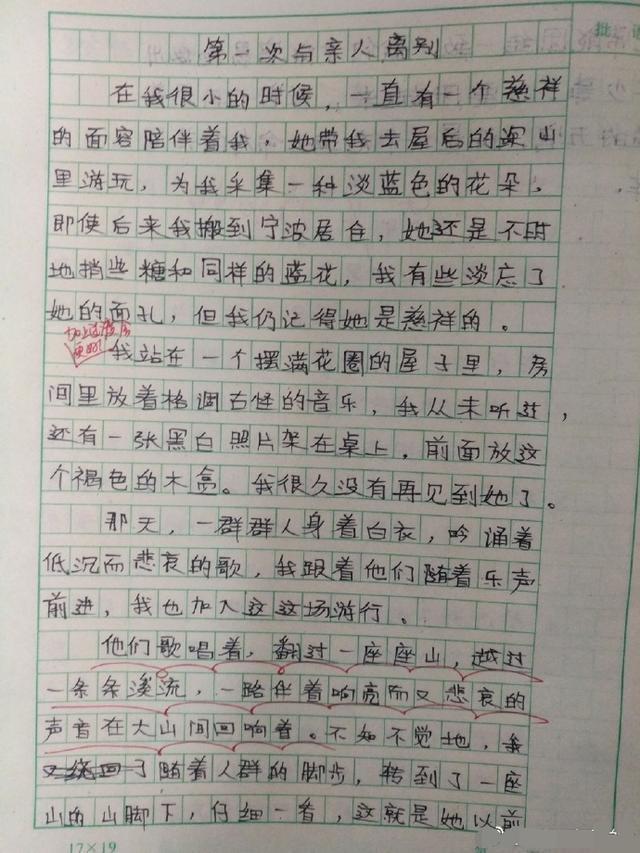 第一次与亲人离别
在我很小的时候，一直有一个慈祥
的面容陪伴着我，她带我去屋后的深山
里游玩，为我采集一种淡蓝色的花朵，
即使后来我搬到宁波居住，她还是不时
地捎些糖和同样的蓝花，我有些淡忘了
她的面孔，但我仍记得她是慈祥的。
我站在一个摆满花圈的屋子里，房
间里放着格调古怪的音乐，我从未听过，
还有一张黑白照片架在桌上，前面放这
个褐色的木盒。我很久没有再见到她了。
那天，一群群人身着白衣，吟诵着
低沉而悲哀的歌，我跟着他们随着乐声
前进，我也加入这这场游行。
他们歌唱着，翻过一座座山，越过
一条条溪流，一路伴着响亮而又悲哀的
声音在大山间回响着。不知不觉地，我
又绕回了随着人群的脚步，转到了一座
山的山脚下，仔细一看，这就是她以前
17×19